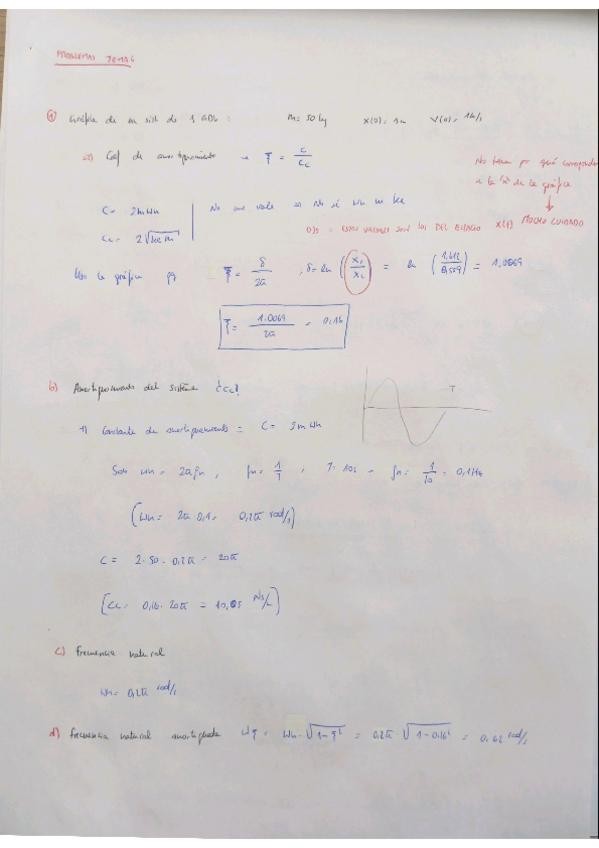 PROBLEMAS TEMA 6
① Gráfica de un sist de 1 GDL: m= 50 kg X(0)= 1m V(0)= 1m/s
a) Coef de amortiguamiento → ξ = C/Cc
No tienen por qué corresponder
a la "x" de la gráfica
↓
MUCHO CUIDADO
C= 2mWn
Cc= 2√km
No me vale → No sé Wn ni k
OJO: ESTOS VALORES SON LOS DEL ESPACIO X(t)
Uso la gráfica ξ = δ/2π ; δ= ln (X1/X2) = ln (1,612/0,559) = 1,0069
ξ = 1.0069/2π = 0,16
b) Amortiguamiento del sistema ¿Cc?
T
*) Constante de amortiguamiento = C= 2mWn
Wn = 2πfn , fn= 1/T , T= 10s → fn= 1/10 = 0,1Hz
(Wn= 2π·0,1= 0,2π rad/s)
C= 2·50·0,2π= 20π
[Cc= 0,16·20π = 10,05 Ns/m]
c) Frecuencia natural
Wn= 0,2π rad/s
d) Frecuencia natural amortiguada Wξ= Wn·√1-ξ² = 0.2π·√1-0.16² = 0.62 rad/s